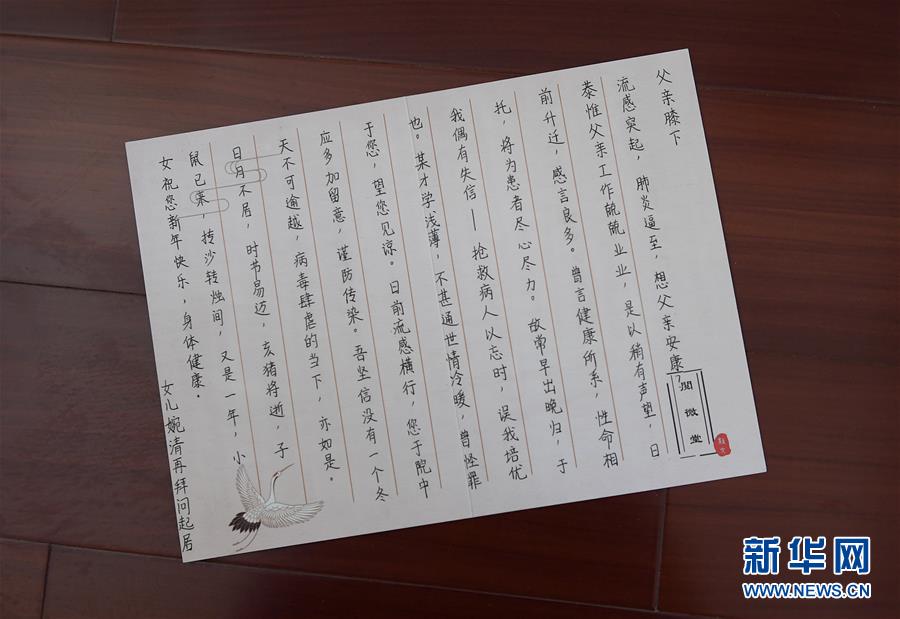 父亲膝下
流感突起，肺炎逼至，想父亲安康？
恭惟父亲工作兢兢业业，是以稍有声望，日
前升迁，感言良多。曾言健康所系，性命相
托，将为患者尽心尽力。故常早出晚归，于
我偶有失信——抢救病人以忘时，误我培优
也。某才学浅薄，不甚通世情冷暖，曾怪罪
于您，望您见谅。日前流感横行，您于院中
应多加留意，谨防传染。吾坚信没有一个冬
天不可逾越，病毒肆虐的当下，亦如是。
日月不居，时书易迈，亥猪将逝，子
鼠已来，抟沙转烛间，又是一年，小
女祝您新年快乐，身体健康。
女儿婉清再拜问起居
閱微堂
新华网
WWW.NEWS.CN